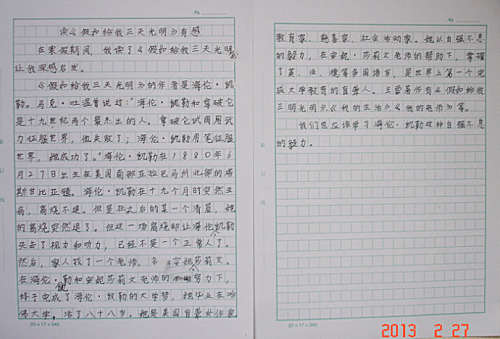 读《假如给我三天光明》有感
在寒假期间，我读了《假如给我三天光明》
让我深感启发。
《假如给我三天光明》的作者是海伦·凯
勒。马克·吐温曾说过：“海伦·凯勒和拿破仑
是十九世纪两个最杰出的人。拿破仑试用武
力征服世界，他失败了；海伦·凯勒用笔征服
世界，她成功了。”海伦·凯勒在1880年6
月27日出生在美国南部亚拉巴马州北部的塔
斯甘比亚镇。海伦·凯勒在十九个月时突然生
病，高烧不退。但是在之后的某一个清晨，她
的高烧突然退了。但这一场高烧却让海伦·凯勒
失去了视力和听力，已经不是一个正常人了。
然后，家人找了一个老师，名 安妮莎莉文。
在海伦·凯勒和安妮莎莉文老师的努力下，
终于完成了海伦·凯勒的大学梦，她毕业在哈
佛大学。活了八十八岁，她是美国盲聋女作家
教育家、慈善家、社会活动家。她以自强不息
的毅力，在安妮·莎莉文老师的帮助下，掌握
了英、法、德等多国语言，是世界上第一个完
成大学教育的盲聋人。主要著作有《假如给我
三天光明》《我的生活》《我的老师》等。
我们也应该学习海伦·凯勒这种自强不息
的毅力。
20×17=340
2013 2 27